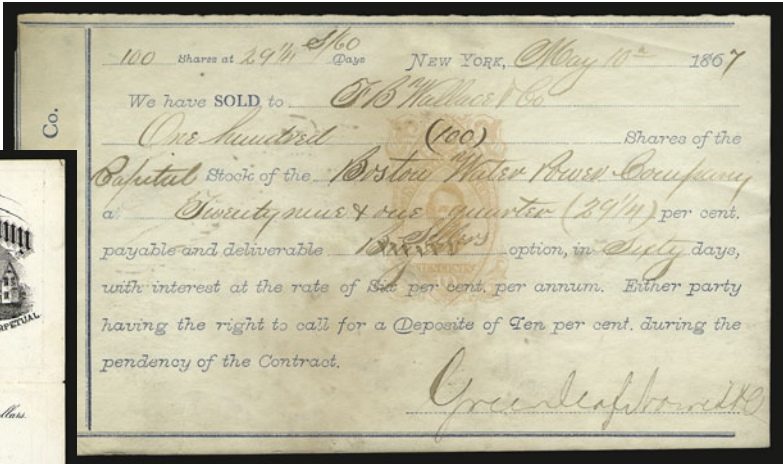 100 Shares at 29 1/4 S/60 Days NEW YORK, May 10th 1867
We have SOLD to F B Wallace & Co
One hundred (100) Shares of the
Capital Stock of the Boston Water Power Company
a Twenty nine & one quarter (29 1/4) per cent.
payable and deliverable Sellers option, in Sixty days,
with interest at the rate of Six per cent. per annum. Either party
having the right to call for a Deposite of Ten per cent. during the
pendency of the Contract.
Co.
TEN CENTS
PERPETUAL
llars.